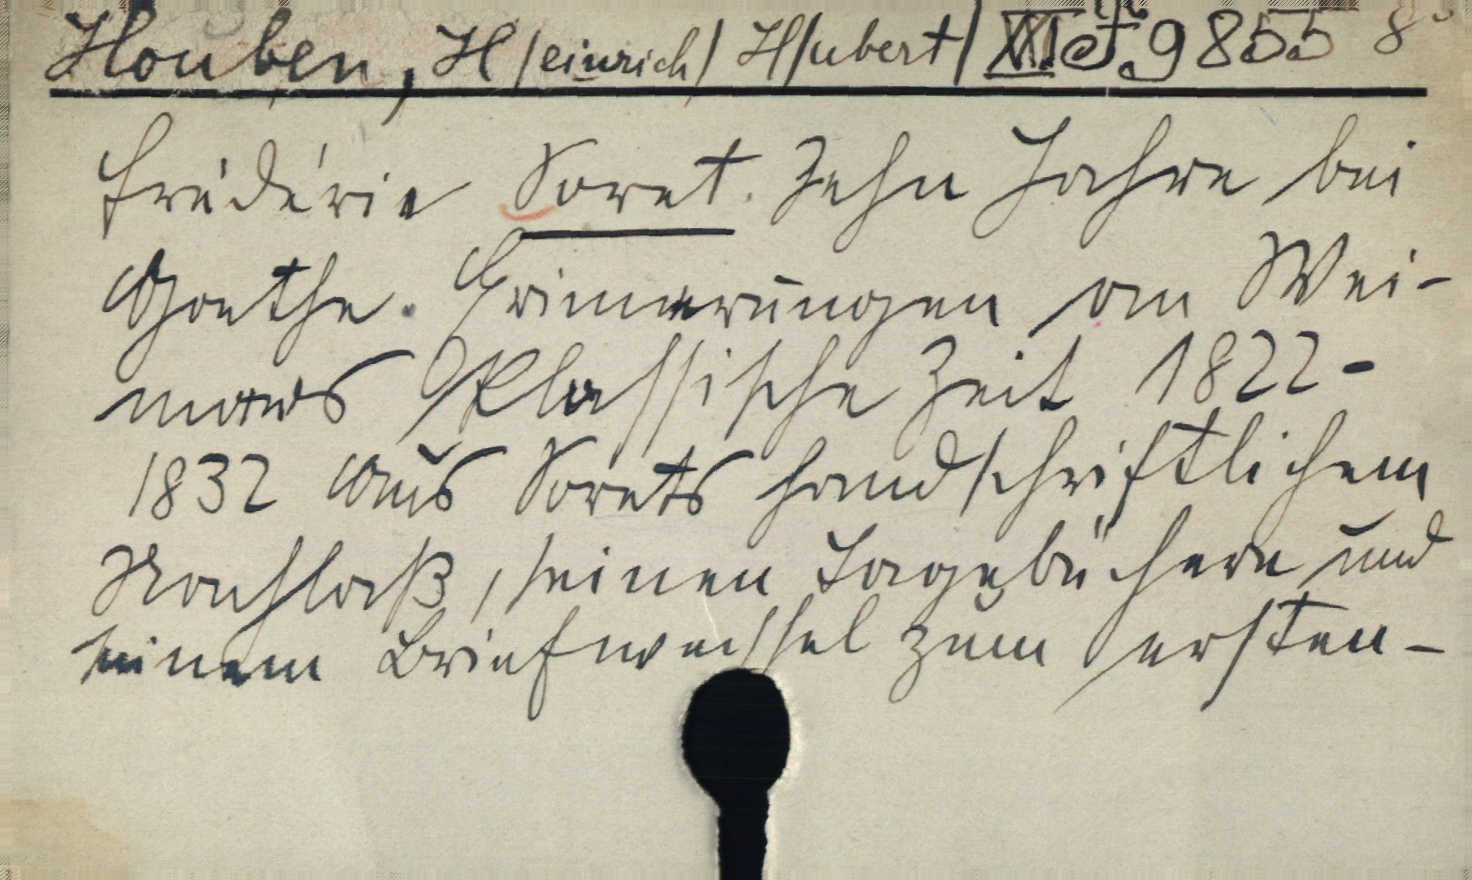 Houben, H/einrich/ H/ubert/ 9855 8°
Frédéric Soret. Zehn Jahre bei
Goethe. Erinnerungen an Wei-
mars klassische Zeit 1822-
1832 Aus Sorets handschriftlichem
Nachlaß, seinen Tagebüchern und
seinem Briefwechsel zum ersten-